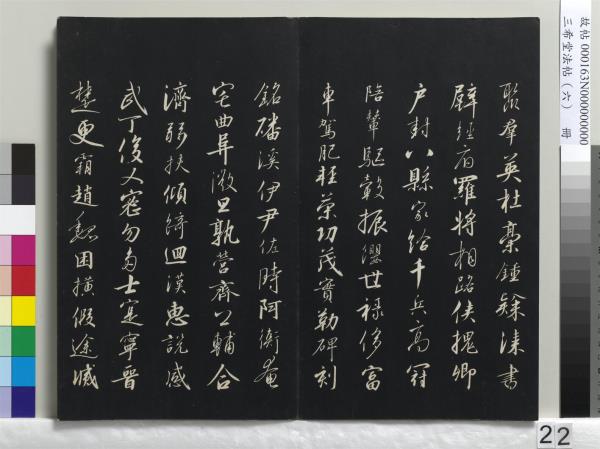 聚群英杜稾鍾隸漆書
壁經府羅將相路俠槐卿
户封八縣家給千兵高冠
陪輦驅轂振纓世禄侈富
車駕肥輕策功茂實勒碑刻
銘磻溪伊尹佐時阿衡奄
宅曲阜微旦孰營齊公輔合
濟弱扶傾綺迴漢惠說感
武丁俊乂密勿多士寔寧晉
楚更霸趙魏困橫假途滅
故帖 000163N000000000
三希堂法帖（六） 冊
22